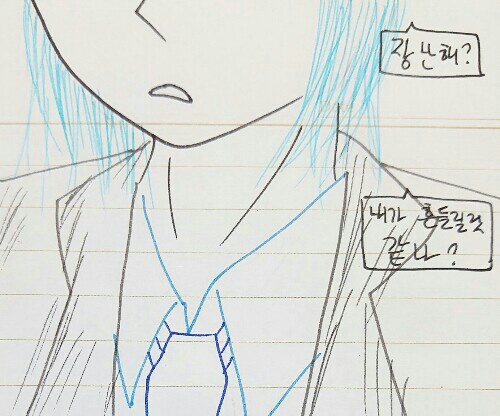 장난해?
내가 흔들릴것
같냐?